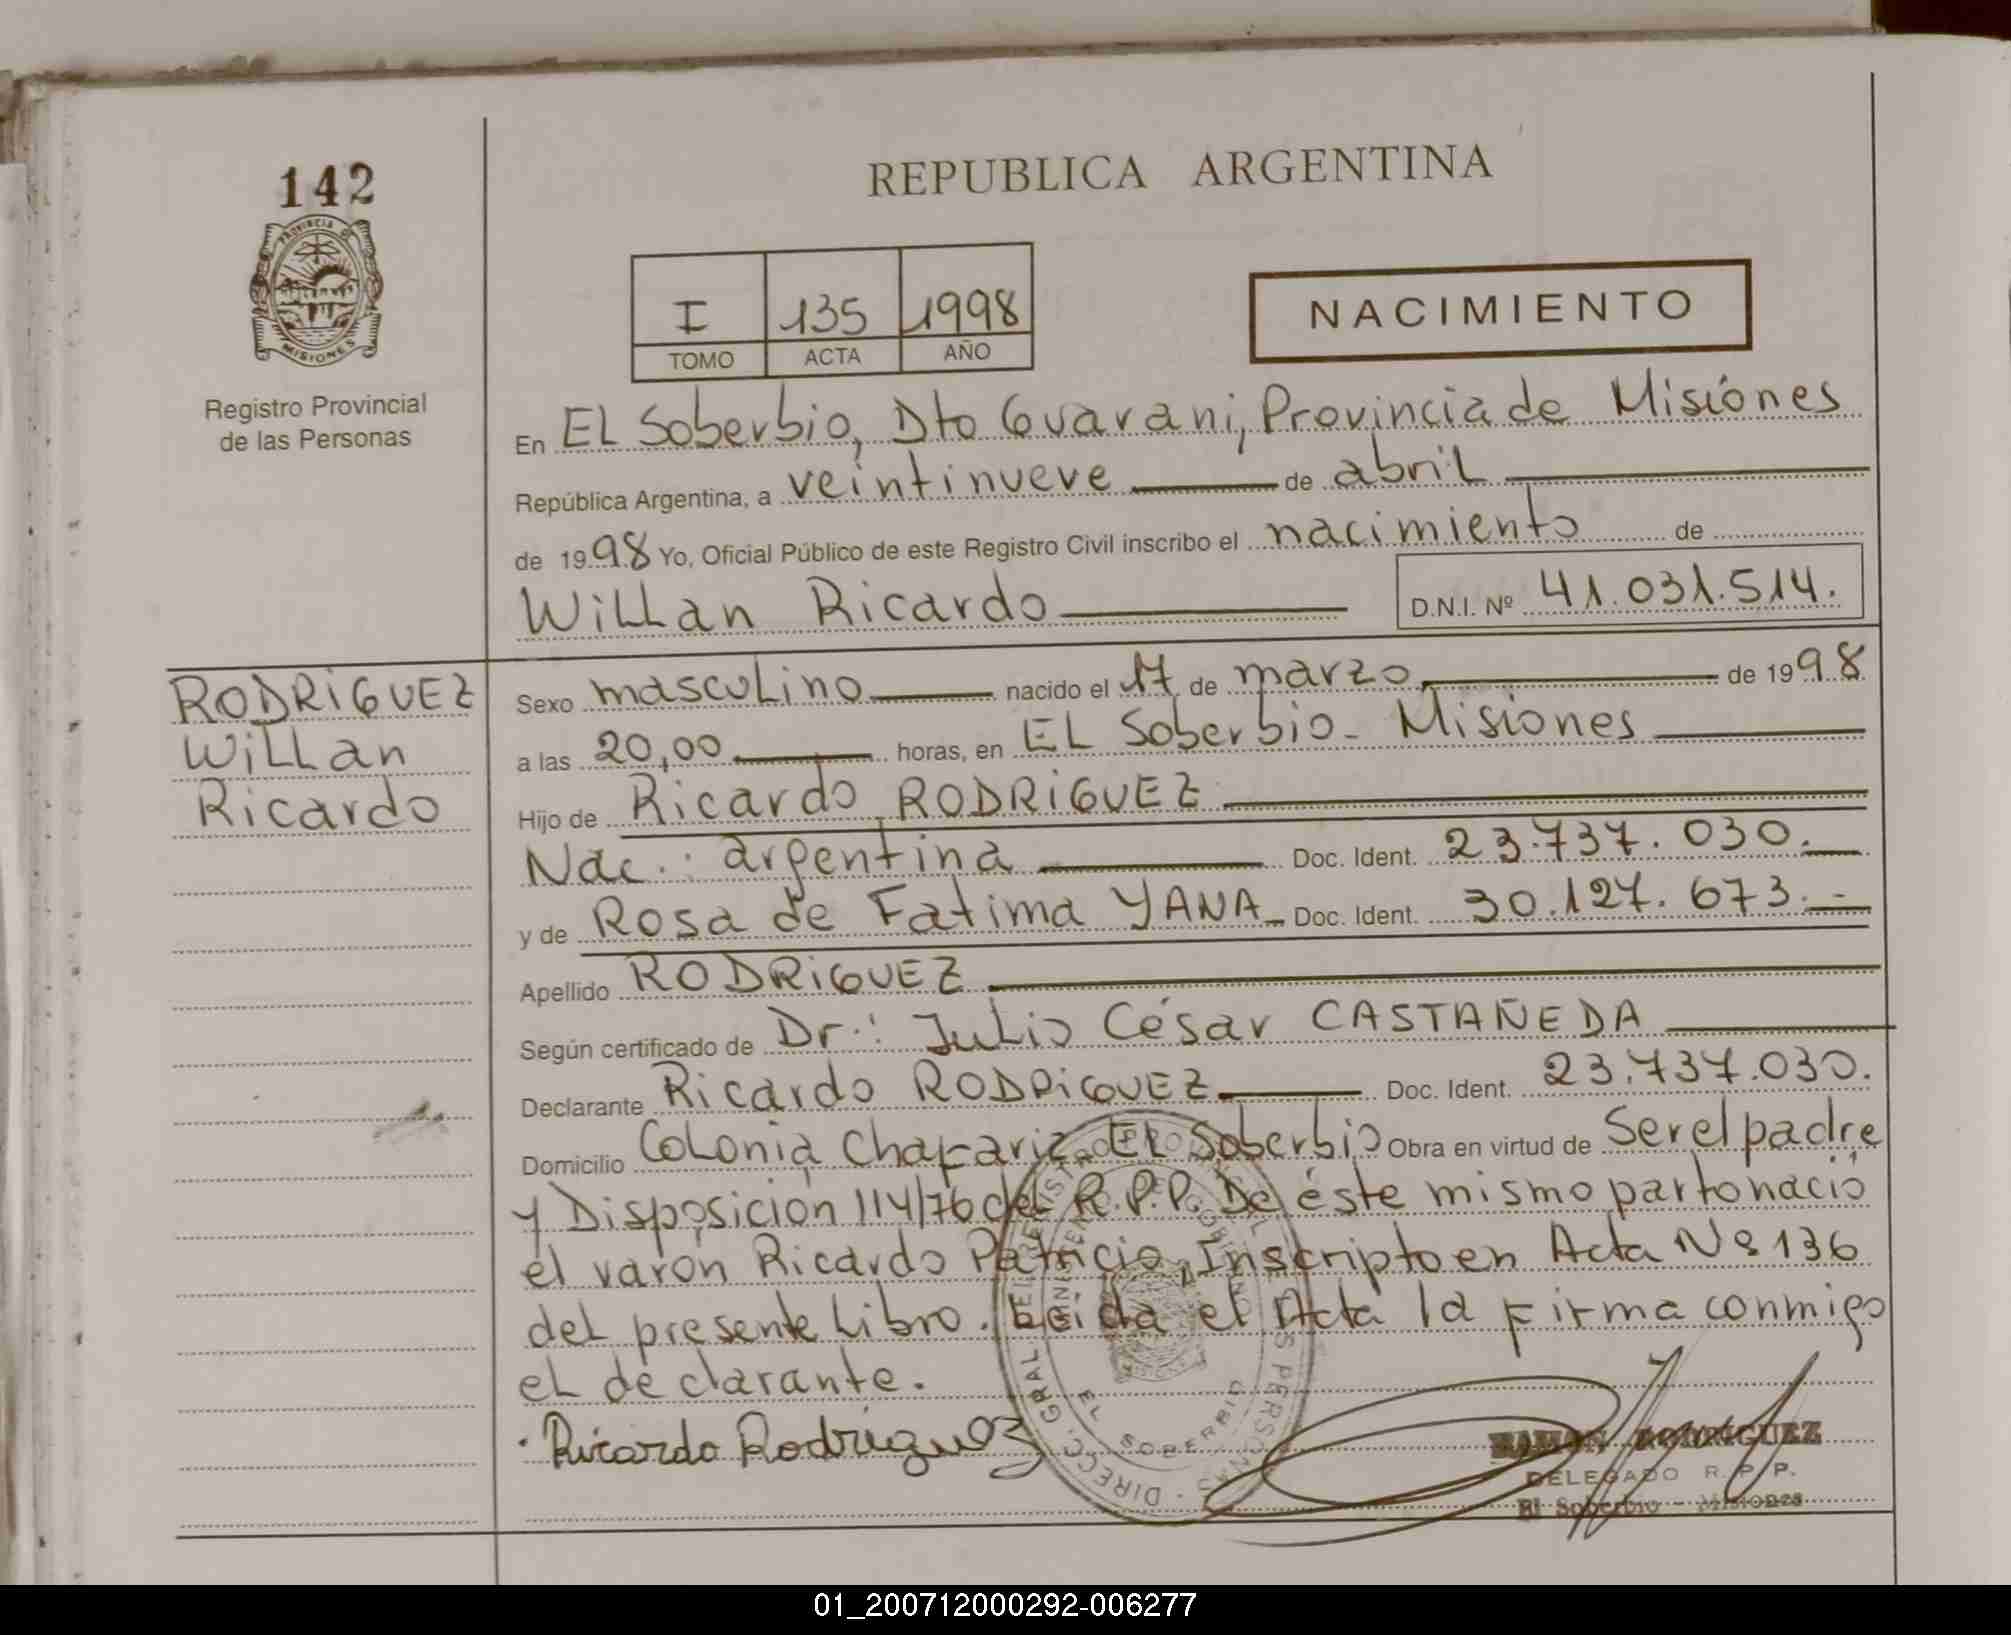 142
PROVINCIA DE
MISIONES
Registro Provincial
de las Personas
REPUBLICA ARGENTINA
I 135 1998
TOMO ACTA AÑO
NACIMIENTO
En El Soberbio, Dto Guarani, Provincia de Misiónes
República Argentina, a veintinueve de abril
de 1998 Yo, Oficial Público de este Registro Civil inscribo el nacimiento de
Willan Ricardo D.N.I. Nº 41.031.514.
RODRIGUEZ
Willan
Ricardo
Sexo masculino nacido el 17 de marzo de 1998
a las 20,00 horas, en El Soberbio - Misiones
Hijo de Ricardo RODRIGUEZ
Nac.: argentina Doc. Ident. 23.737.030.
y de Rosa de Fatima YANA Doc. Ident. 30.127.673.-
Apellido RODRIGUEZ
Según certificado de Dr.: Julio César CASTAÑEDA
Declarante Ricardo RODRIGUEZ Doc. Ident. 23.737.030.
Domicilio Colonia Chafariz El Soberbio Obra en virtud de Ser el padre
y Disposición 114/76 del R.P.P. De éste mismo parto nació
el varón Ricardo Patricio, Inscripto en Acta Nº 136
del presente Libro. Leída el Acta la firma conmigo
el declarante.
Ricardo Rodriguez
EL SOBERBIO
RAMON RODRIGUEZ
DELEGADO R. P. P.
El Soberbio - Misiones
01_200712000292-006277